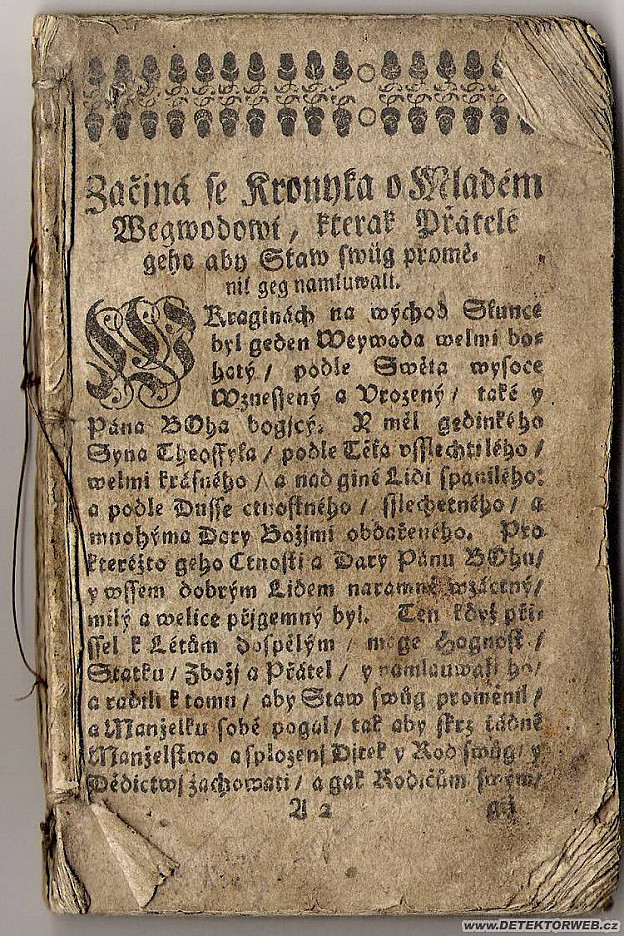 Začjná se Kronyka o Mladém
Wegwodowi, kterak Přátelé
geho aby Staw swůg promě-
nil geg namluwali.
W Kraginách na wýchod Slunce
byl geden Weywoda welmi bo-
hatý / podle Swěta wysoce
Wznessený a Vrozený / také y
Pána BOha bogjcý. Y měl gedinkého
Syna Theoffyla / podle Těla vsslechtilého /
welmi krásného / a nad giné Lidi spanilého:
a podle Dusse ctnostného / sslechetného / a
mnohýma Dary Božjmi obdařeného. Pro
kteréžto geho Ctnosti a Dary Pánu BOhu /
y wssem dobrým Lidem naramně wzáctný /
milý a welice přjgemný byl. Ten když při-
ssel k Létům dospělým / mage hognost /
Statku / Zbožj a Přátel / y namlauwali ho /
a radili k tomu / aby Staw swůg proměnil /
a Manželku sobě pogal / tak aby skrz řádné
Manželstwo a splozenj Djtek y Rod swůg / y
Dědictwj zachowati / a gak Rodičům swým /
A 2
www.DETEKTORWEB.cz